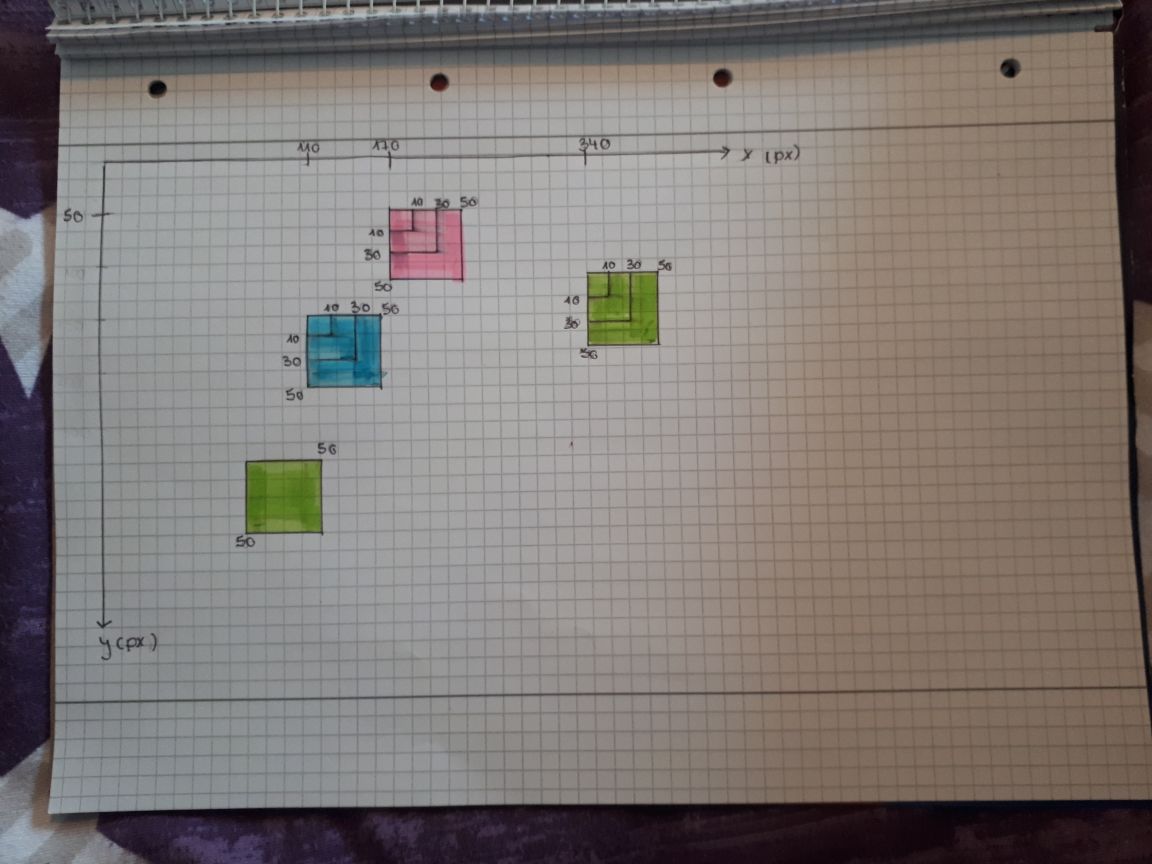 110 170 340
x (px)
50
10 30 50
10
30
50
10 30 50
10
30
50
10 30 50
10
30
50
50
50
y (px)